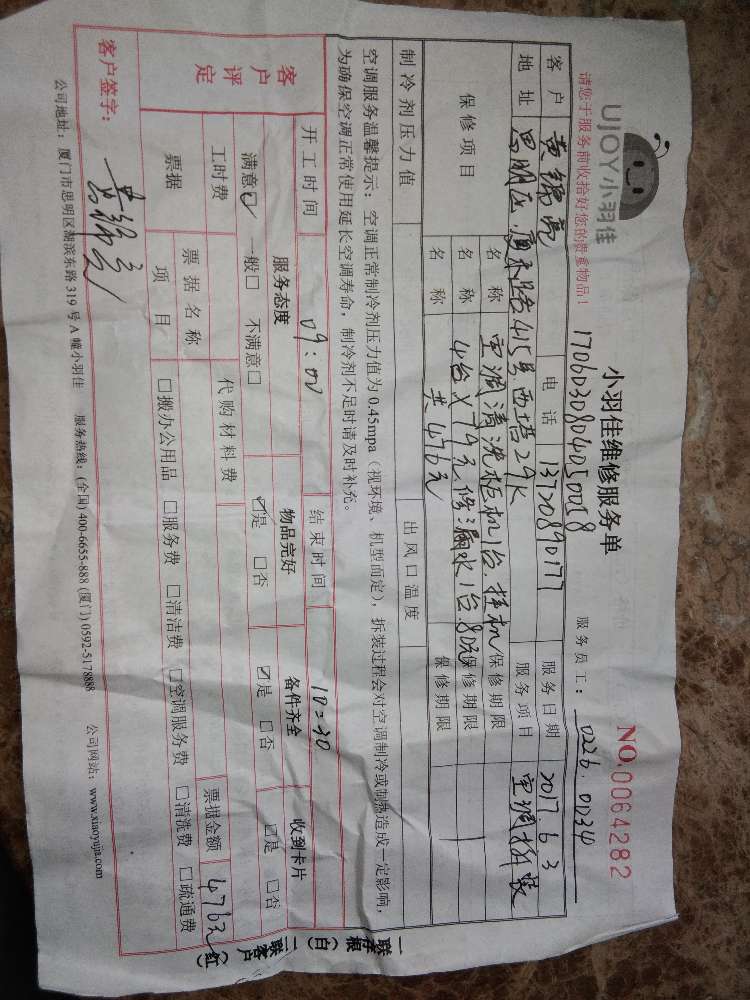 UJOY小羽佳
请您于服务前收拾好您的贵重物品！
小羽佳维修服务单
NO.0064282
1706030804050018
服务员工：0226.0034
客户 黄锦亮 电话 13720890177 服务日期 2017 6 3
地址 思明区 厦禾路415号西塔29K 服务项目 空调拆装
保修项目 名称 空调清洗柜机1台.挂机 保修期限
名称 4台×79元.修漏水1台.80元 保修期限
名称 共476元 保修期限
制冷剂压力值 出风口温度
空调服务温馨提示：空调正常制冷剂压力值为0.45mpa（视环境、机型而定），拆装过程会对空调制冷或制热造成一定影响，
为确保空调正常使用延长空调寿命，制冷剂不足时请及时补充。
开工时间 09:00 结束时间 10:30
客户评定
服务态度 物品完好 备件齐全 收到卡片
满意☑ 一般□ 不满意□ ☑是 □否 ☑是 □否 ☑是 □否
工时费 代购材料费 票据金额 476元
票据 票据名称
项目 □搬办公用品 □服务费 □清洁费 □空调服务费 □清洗费 □疏通费
客户签字：黄锦亮
公司地址：厦门市思明区湖滨东路319号A幢小羽佳 服务热线：(全国) 400-6655-888 (厦门) 0592-5178888 公司网站：www.xiaoyujia.com
一联存根（白）
二联客户（红）